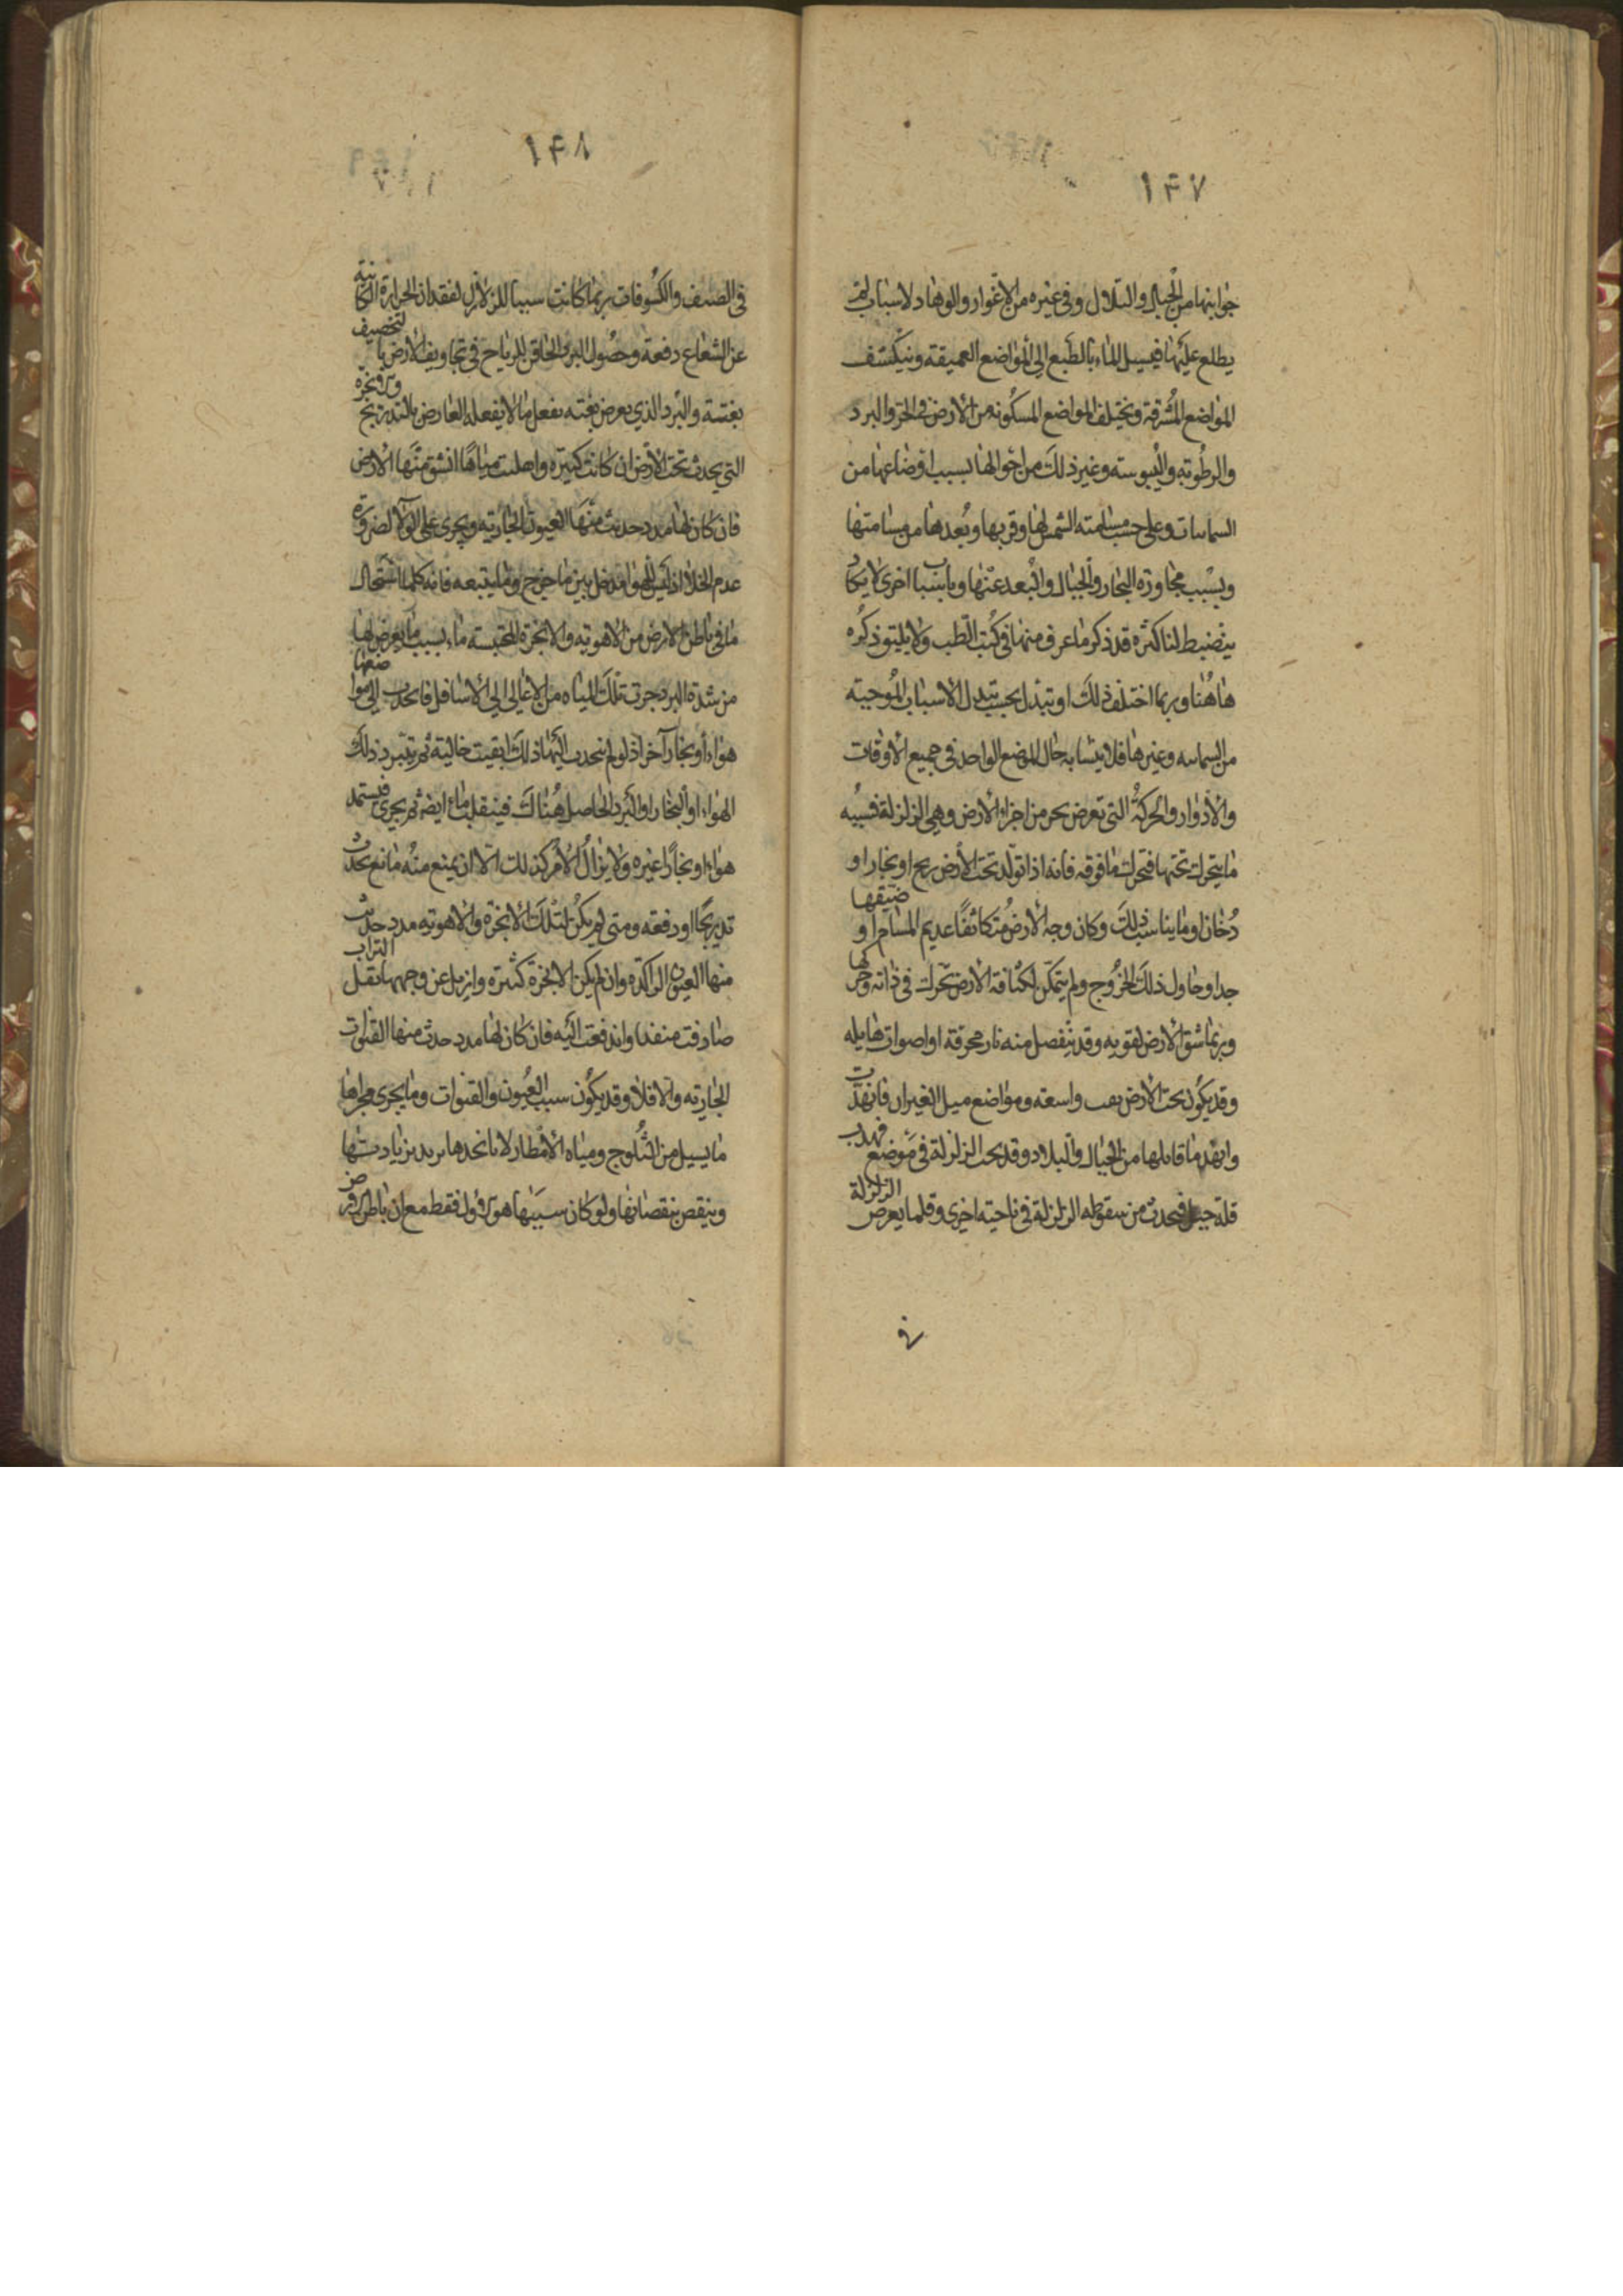 ١٤٧
جوانبها من الجبال والتلال وفي غيره من الاغوار والوهاد لاسباب لم
يطلع عليها فيسيل الماء بالطبع الى المواضع العميقة وينكشف
المواضع المشرفة ويختلف المواضع المسكونه من الارض في الحر والبرد
والرطوبه واليبوسته وغير ذلك من احوالها بسبب اوضاعها من
السماىات وعلى حسب مسامته الشمس لها وقربها وبعدها من مسامتها
وبسبب مجاورة البحار والجبال والبعد عنها وباسباب اخرى لا يكاد
ينضبط لنا اكثره قد ذكر ما عرف منها في كتب الطب ولا يليق ذكره
هاهنا وربما اختلف ذلك او تبدل بحسب تبدل الاسباب الموجبة
من السماىه وغيرها فلا يتشابه حال الموضع الواحد في جميع الاوقات
والادوار والحركة التي تعرض بحر من اجزاء الارض وهي الزلزلة فسببه
ما يتحرك تحتها فتحرك ما فوقه فانه اذا تولد تحت الارض ريح او بخار او
دخان او ما يناسب ذلك وكان وجه الارض متكاثفا عديم المسام او ضيقها
جدا وحاول ذلك الخروج ولم يتمكن لكثافة الارض تحرك في ذاته وحركها
وربما شق الارض لقوته وقد ينفصل منه نار محرقة او اصوات هايله
وقد يكون تحت الارض واسعة ومواضع ميل الغيران فانهدت
وانهد ما قابلها من الجبال والبلاد وقد يحدث الزلزلة في موضع فهدب
قلة جبل فيحدث من سقوطه الزلزلة في ناحيته اخرى وقلما يعرض الزلزلة
في
١٤٨
في الصيف والكسوفات ربما كانت سببا للزلازل لفقدان الحرارة الكائنة
عن الشعاع دفعة وحصول البرد الخاقن للرياح في تجاويف الارض بالتخصيف
بغتتة والبرد الذي يعرض بغته يفعل ما لا يفعله العارض بالتدريج والابخرة
التي يحدث تحت الارض ان كانت كثيره واىلبت مياها انشق منها الارض
فان كان لها مدد حدثت منها العيون الجارية ويجرى على الولا لضرورة
عدم الخلا اذ ليس للهوا مدخل بين ما خرج وما يتبعه فانه كلما استحال
ما في باطن الارض من الاهويه والابخرة المحتبسه ماء بسبب ما يعرض لها
من شدة البرد جرت تلك المياه من الاعالي الى الاسافل فانحدب الى مواضعها
هواء او بخار آخر اذ لو لم ينحدب اليها ذلك ابقيت خالية ثم يتبرد ذلك
الهواء او البخار والبرد الحاصل هناك فينقلب ماء ايضا ثم يجرى فيستمد
هواء او بخارا غيره ولا يزال الامر كذلك الا ان يمنع منه مانع يحدث
تدريجا او دفعه ومتى لم يكن لتلك الابخرة والاهويه مدد حدثت
منها العيون الراكدة وان لم يكن الابخرة كثيرة وازيل عن وجهها ثقل التراب
صادفت منفذا واندفعت اليه فان كان لها مدد حدث منها القنوات
الجارية والا فلا وقد يكون سبب العيون والقنوات وما يجرى مجراها
ما يسيل من الثلوج ومياه الامطار لانا نجدها يزيد بزيادتها
وينقص بنقصانها ولو كان سببها هو الاول فقط مع ان باطن الارض